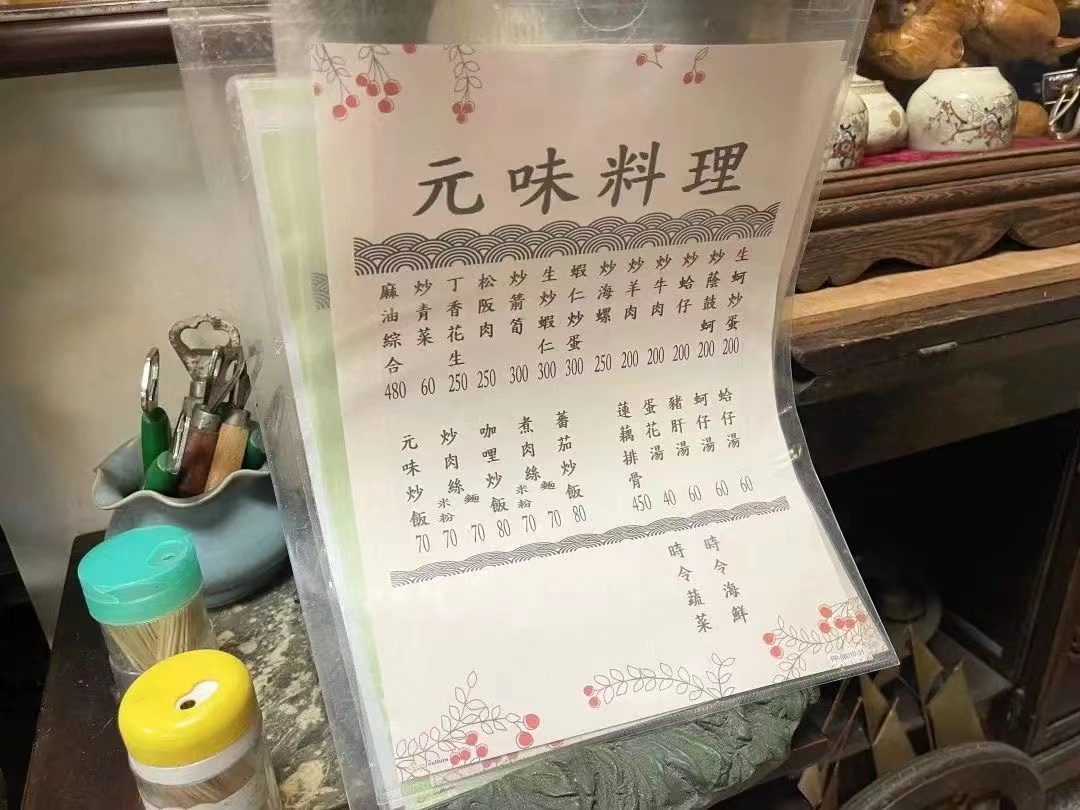 元味料理
生蚵炒蛋 200
炒蔭鼓蚵 200
炒蛤仔 200
炒牛肉 200
炒羊肉 200
炒海螺 250
蝦仁炒蛋 300
生炒蝦仁 300
炒箭筍 300
松阪肉 250
丁香花生 250
炒青菜 60
麻油綜合 480
蛤仔湯 60
蚵仔湯 60
豬肝湯 60
蛋花湯 40
蓮藕排骨 450
蕃茄炒飯 80
煮肉絲 麵 70 米粉 70
咖哩炒飯 80
炒肉絲 麵 70 米粉 70
元味炒飯 70
時令海鮮
時令蔬菜
culture